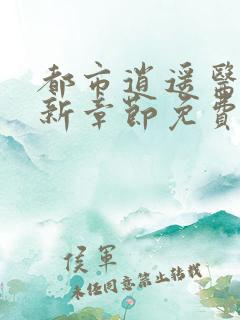 都市逍遥醫
新章節免費
侯軍
未经同意禁止转载